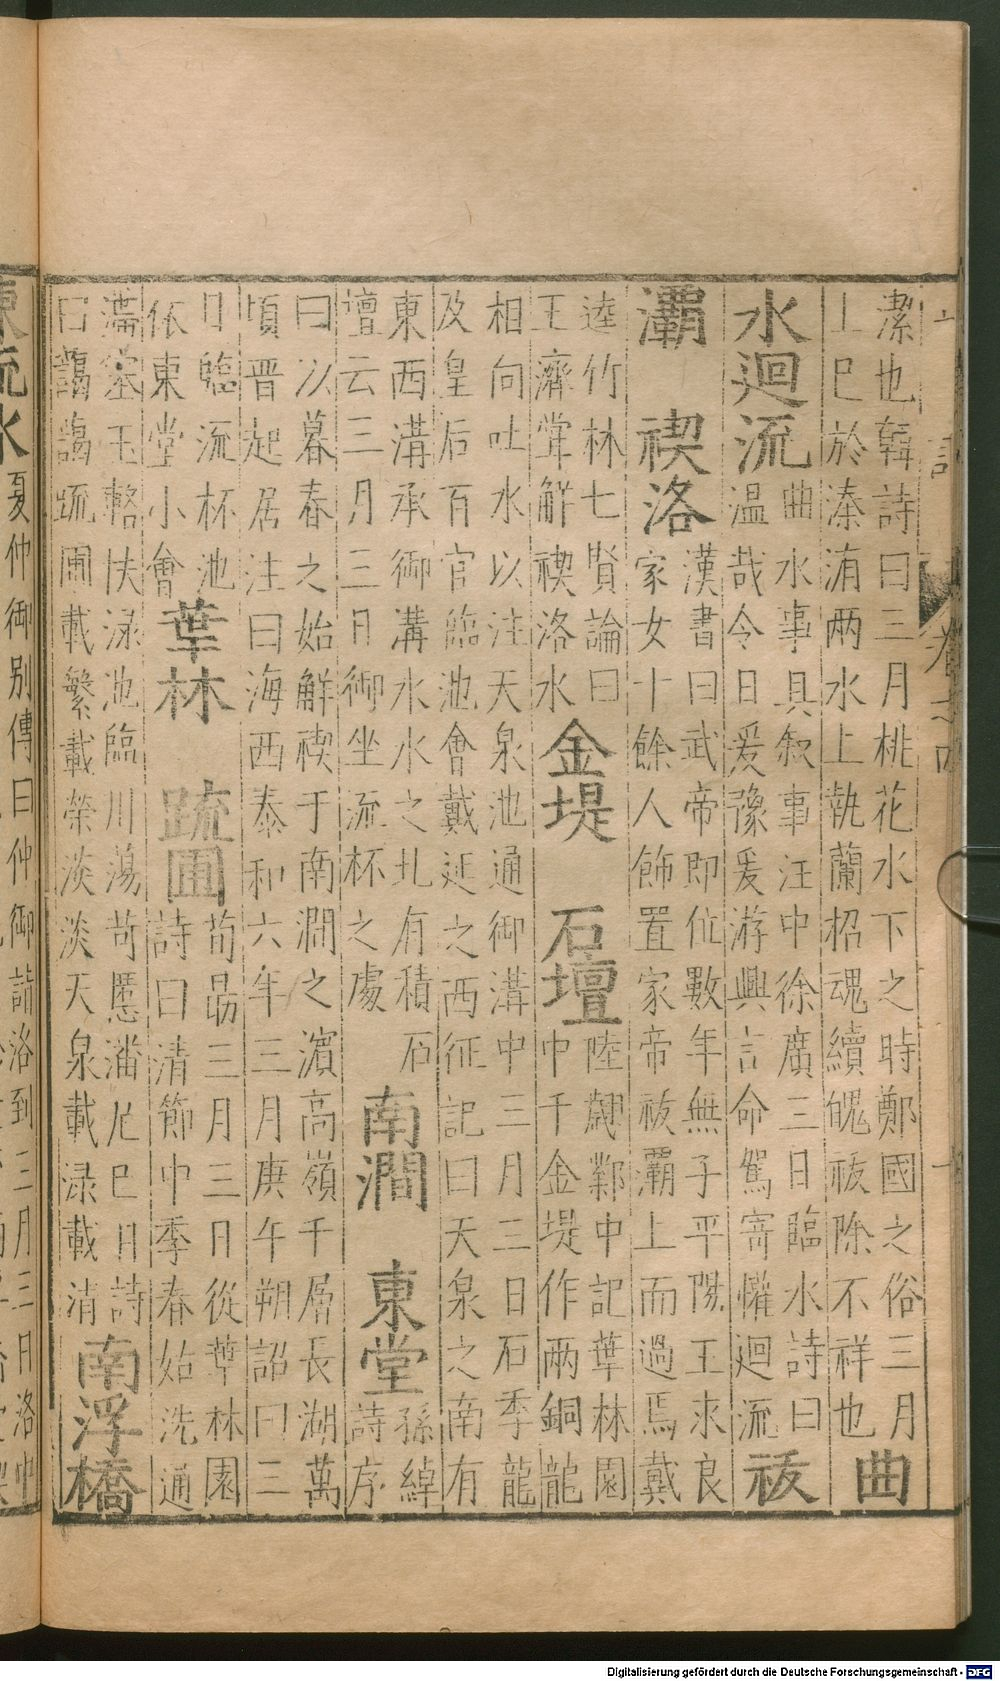 潔也韓詩曰三月桃花水下之時鄭國之俗三月
上巳於溱洧兩水上執蘭招魂續魄祓除不祥也
曲
水迴流
曲水事具叙事汪中徐廣三日臨水詩曰
温哉令日爰豫爰游興言命駕寄懽迴流
祓
灞 禊洛
漢書曰武帝即位數年無子平陽王求良
家女十餘人飾置家帝祓灞上而過焉戴
逵竹林七賢論曰
王濟甞解禊洛水
金堤 石壇
陸翽鄴中記華林園
中千金堤作兩銅龍
相向吐水以注天泉池通御溝中三月三日石季龍
及皇后百官臨池會戴延之西征記曰天泉之南有
東西溝承御溝水水之北有積石
壇云三月三日御坐流杯之處
南澗 東堂
孫綽
詩序
曰以暮春之始解禊于南澗之濵高嶺千層長湖萬
頃晋起居注曰海西泰和六年三月庚午朔詔曰三
日臨流杯池
依東堂小會
華林 疏圃
荀勗三月三日從華林園
詩曰清節中季春姑洗通
滯塞玉輅扶渌池臨川蕩苛慝潘尼巳日詩
曰藹藹疏圃載繁載榮淡淡天泉載渌載清
南浮橋
東流水
夏仲御別傳曰仲御詣洛到三月三日洛中
Digitalisierung gefördert durch die Deutsche Forschungsgemeinschaft - DFG